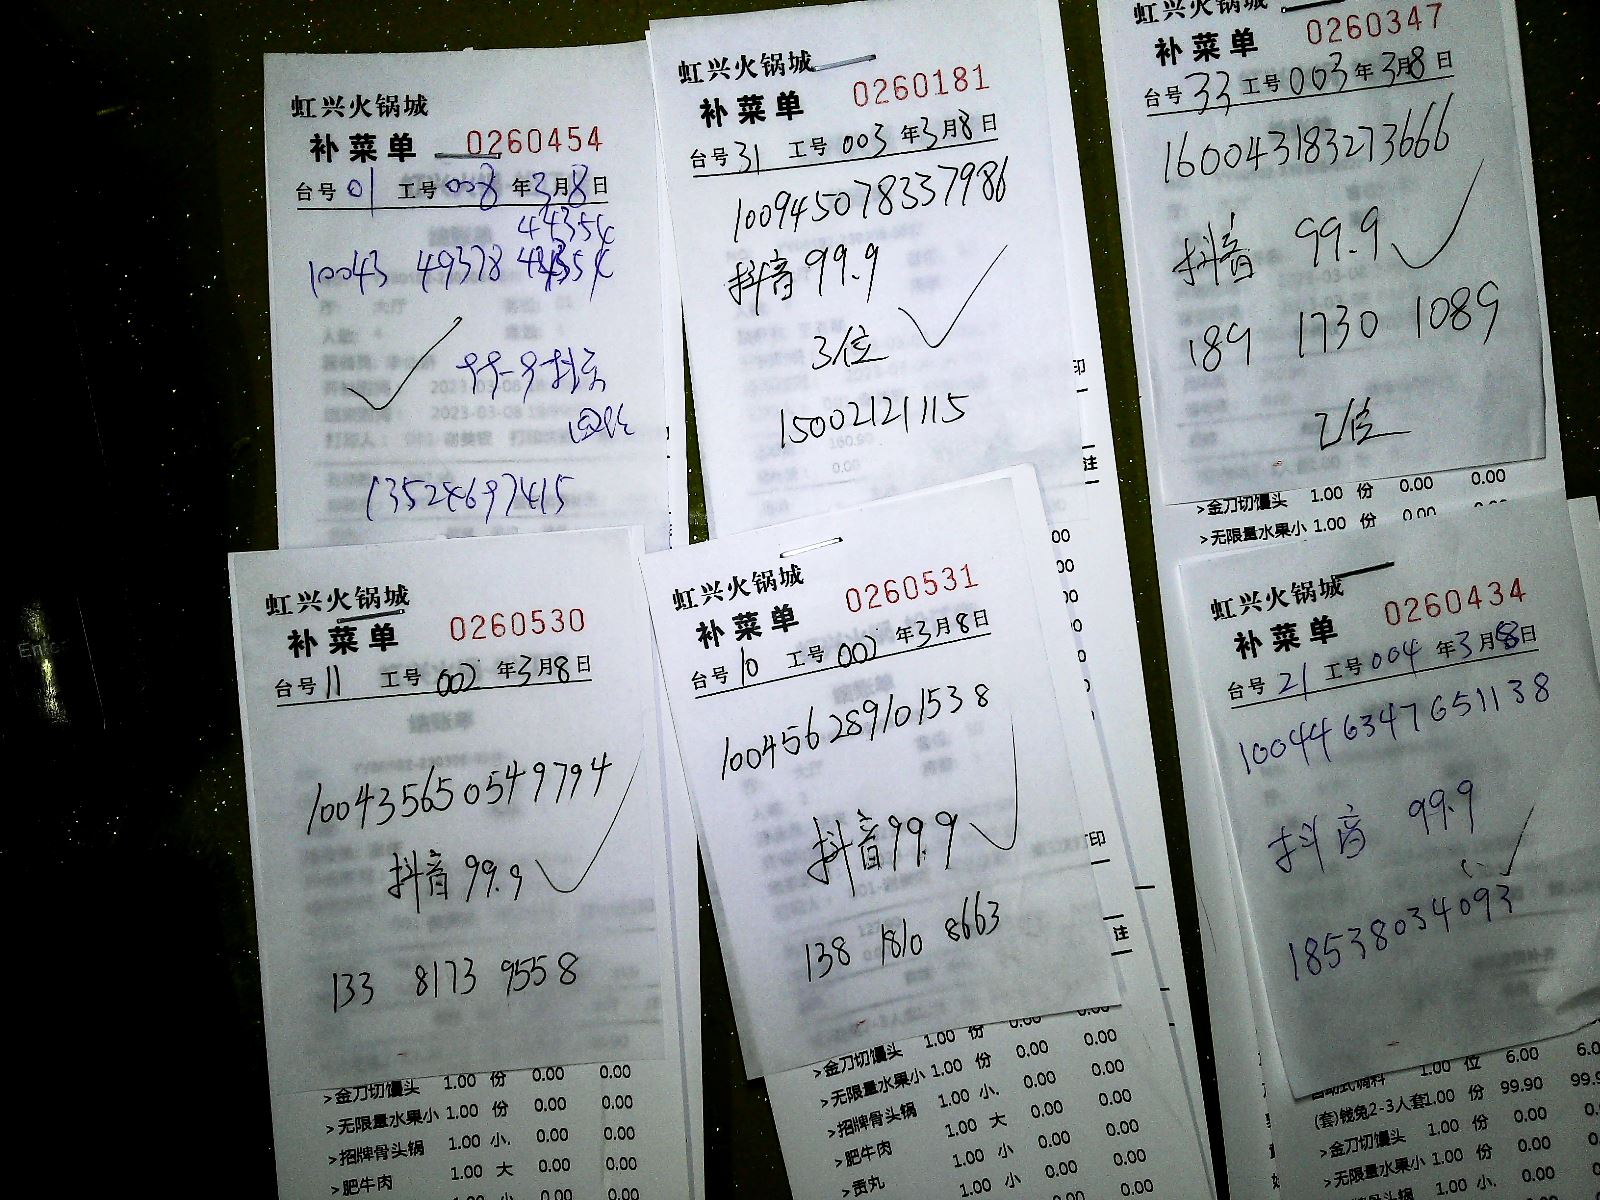 虹兴火锅城
补菜单 0260454
台号 01 工号 008 年 3月 8日
4435
10043 49378
13524697415
虹兴火锅城
补菜单 0260181
台号 31 工号 003 年 3月 8日
100945078337986
抖音 99.9
3位
15002121115
印
注
虹兴火锅城
补菜单 0260347
台号 33 工号 003 年 3月 8日
160043183273666
抖音 99.9
189 1730 1089
2位
>金刀切馒头 1.00 份 0.00 0.00
>无限量水果小 1.00 份 0.00
虹兴火锅城
补菜单 0260530
台号 11 工号 002 年 3月 8日
100435650549794
抖音 99.9
133 8173 9558
>金刀切馒头 1.00 份 0.00 0.00
>无限量水果小 1.00 份 0.00 0.00
>招牌骨头锅 1.00 小. 0.00 0.00
>肥牛肉 1.00 大 0.00 0.00
小 0.00 0.00
虹兴火锅城
补菜单 0260531
台号 10 工号 002 年 3月 8日
100456289101538
抖音 99.9
138 1810 8663
印
注
>金刀切馒头 1.00 份 0.00 0.00
>无限量水果小 1.00 份 0.00 0.00
>招牌骨头锅 1.00 小. 0.00 0.00
>肥牛肉 1.00 大 0.00 0.00
>贡丸 1.00 小 0.00 0.00
1.00 小 0.00 0.00
虹兴火锅城
补菜单 0260434
台号 21 工号 004 年 3月 8日
100446347651138
抖音 99.9
18538034093
自助式调料 1.00 位 6.00 6.0
(套)钱兔2-3人套 1.00 份 99.90 99.9
>金刀切馒头 1.00 份 0.00
>无限量水果小 1.00 份 0.00
1.00 小. 0.00